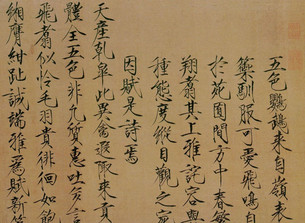 五色鸚鵡来自嶺表
籞馴服可愛飛鳴自
於苑囿間方中春繁
翔翥其上雅詫容與
種態度縱目觀之
因賦是詩焉
天產乾皋此異禽遐陬來貢
體全五色非凡質惠吐多言
飛翥似怜毛羽貴徘徊如飽
緗膺紺趾誠端雅為賦新篇